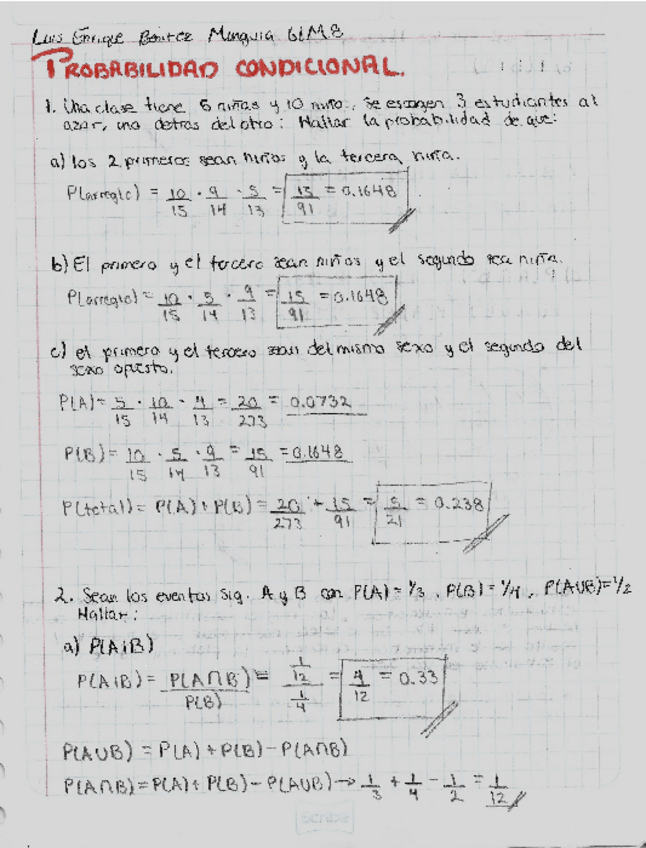 Luis Enrique Benitez Munguia 6IM8
PROBABILIDAD CONDICIONAL.
1. Una clase tiene 5 niñas y 10 niños, se escogen 3 estudiantes al
azar, uno detras del otro: Hallar la probabilidad de que:
a) los 2 primeros sean niños y la tercera niña.
P(arreglo) = 10/15 · 9/14 · 5/13 = 15/91 = 0.1648
b) El primero y el tercero sean niños y el segundo sea niña.
P(arreglo) = 10/15 · 5/14 · 9/13 = 15/91 = 0.1648
c) el primero y el tercero sean del mismo sexo y el segundo del
sexo opuesto.
P(A) = 5/15 · 10/14 · 4/13 = 20/273 = 0.0732
P(B) = 10/15 · 5/14 · 9/13 = 15/91 = 0.1648
P(total) = P(A) + P(B) = 20/273 + 15/91 = 5/21 = 0.238
2. Sean los eventos sig. A y B con P(A) = 1/3, P(B) = 1/4, P(AUB) = 1/2
Hallar:
a) P(A|B)
P(A|B) = P(A∩B)/P(B) = (1/12)/(1/4) = 4/12 = 0.33
P(AUB) = P(A) + P(B) - P(A∩B)
P(A∩B) = P(A) + P(B) - P(AUB) → 1/3 + 1/4 - 1/2 = 1/12
scribe